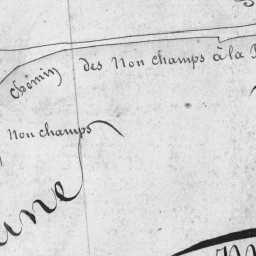 Chémin des Non champs à la
Non champs
une